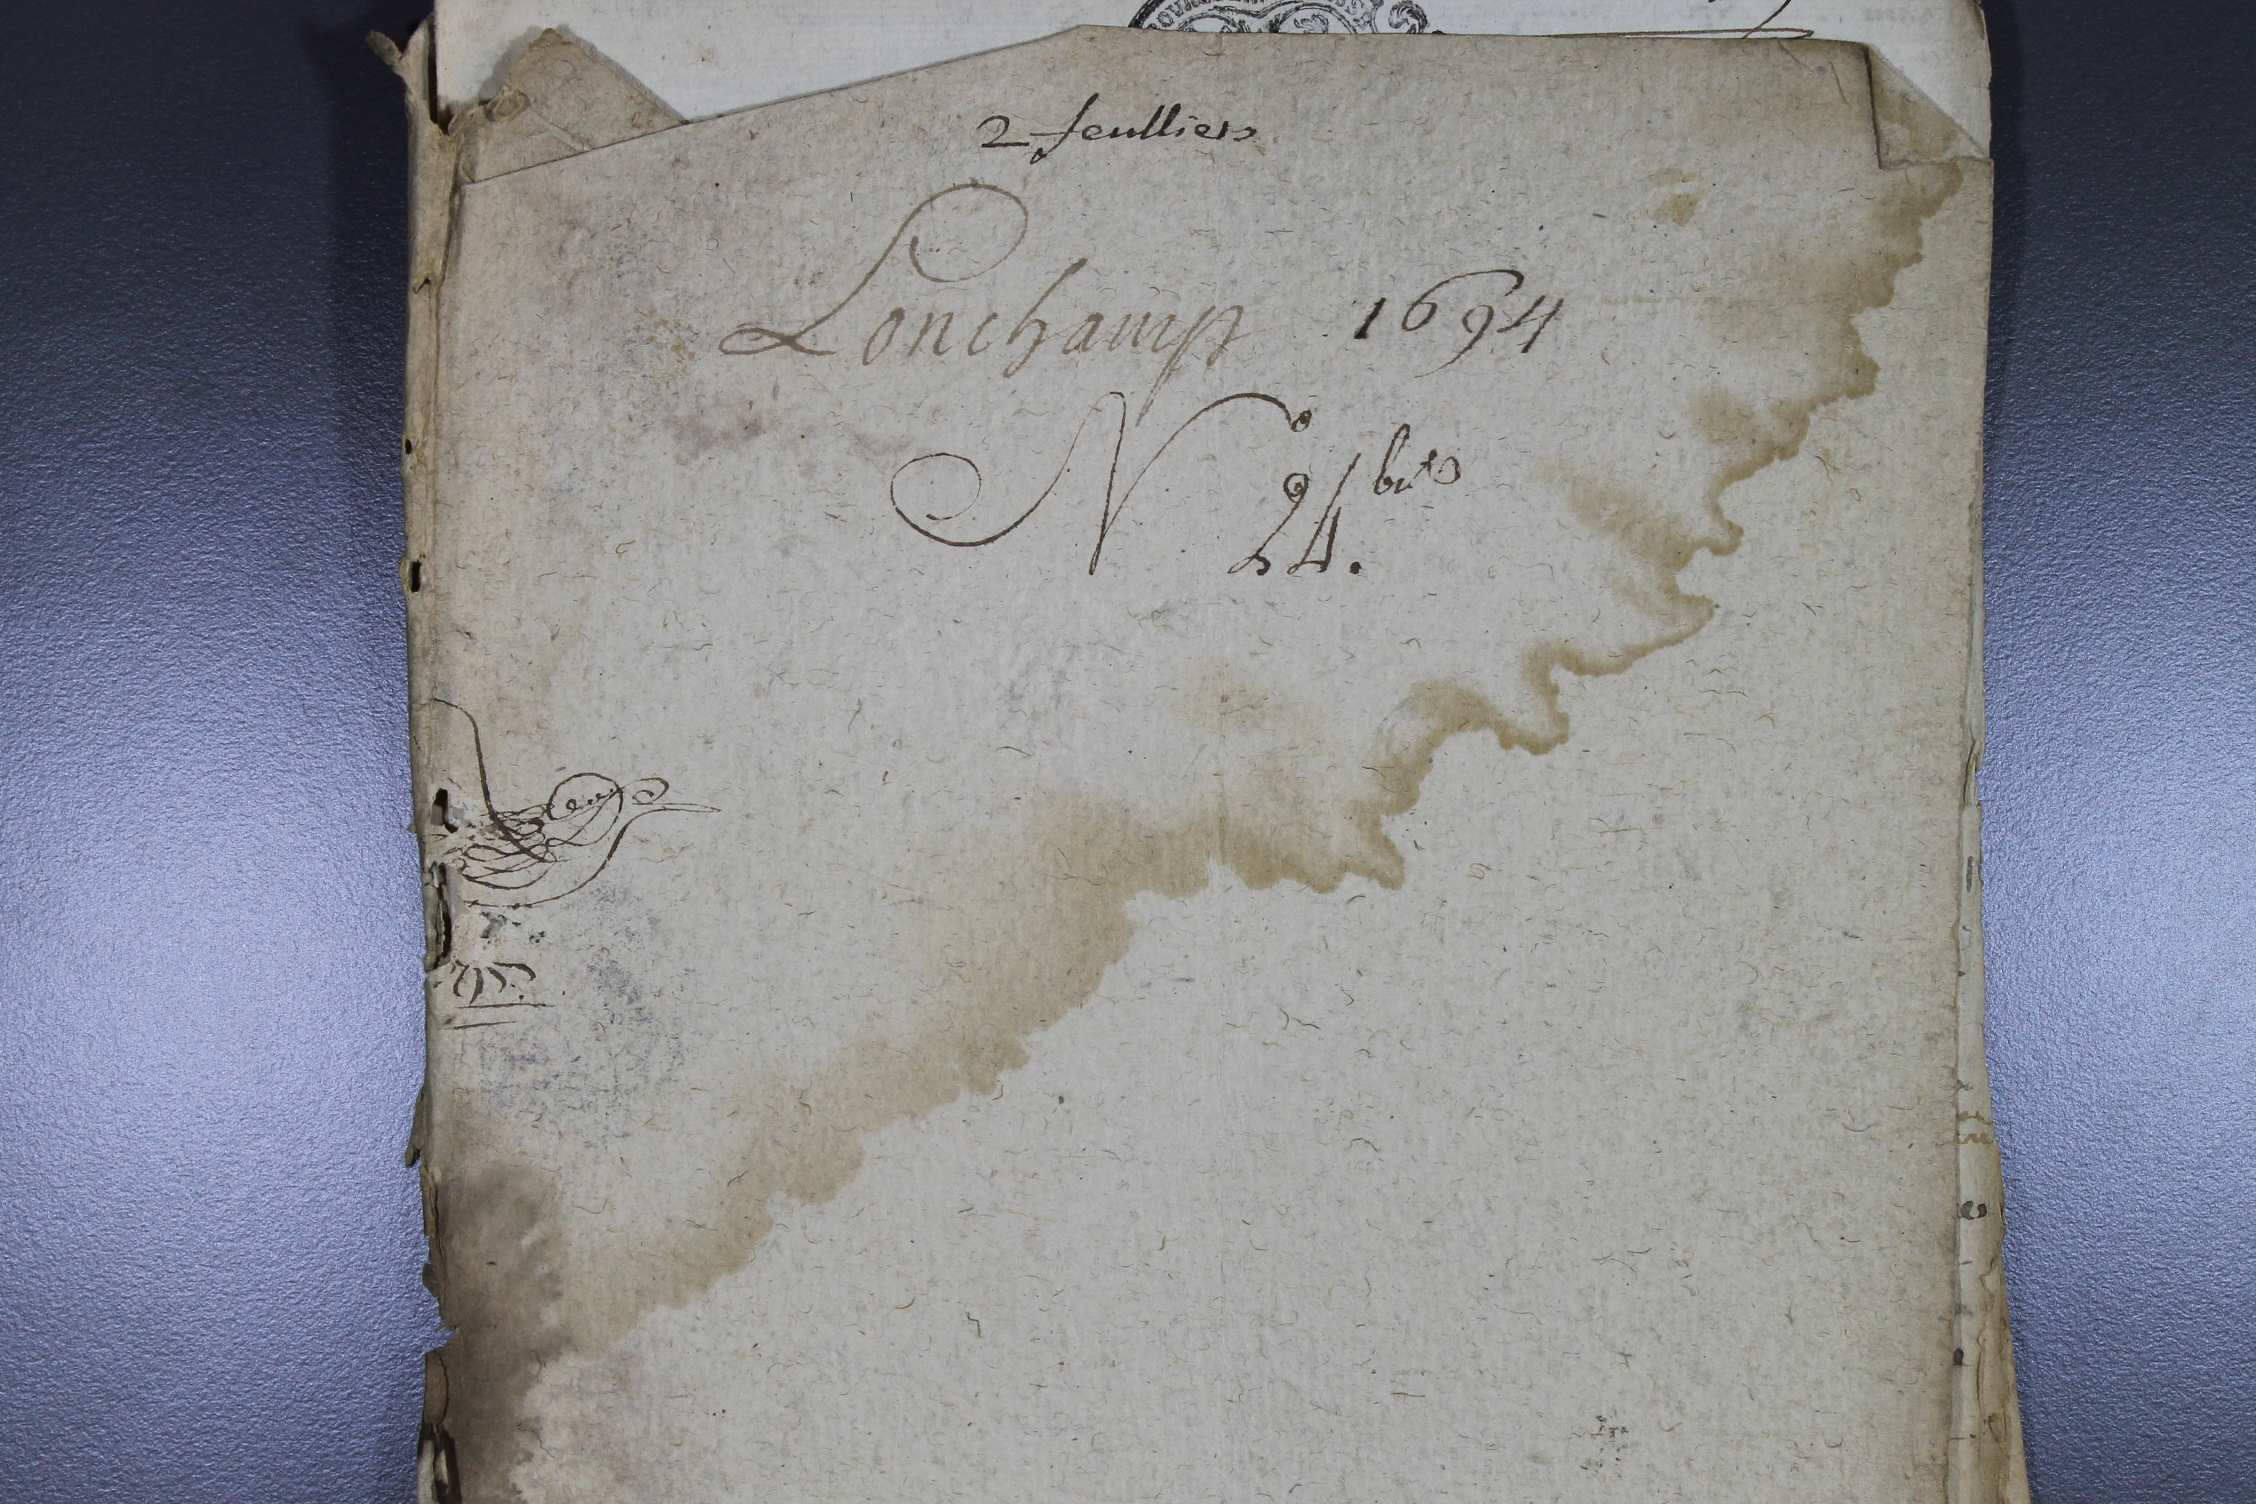 2 feulliers
Lonchamps 1694
N° 24. bis